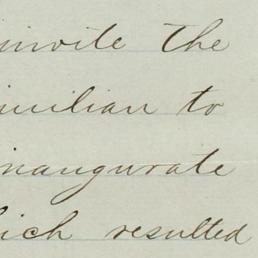 invite the
imilian to
inaugurate
hich resulted